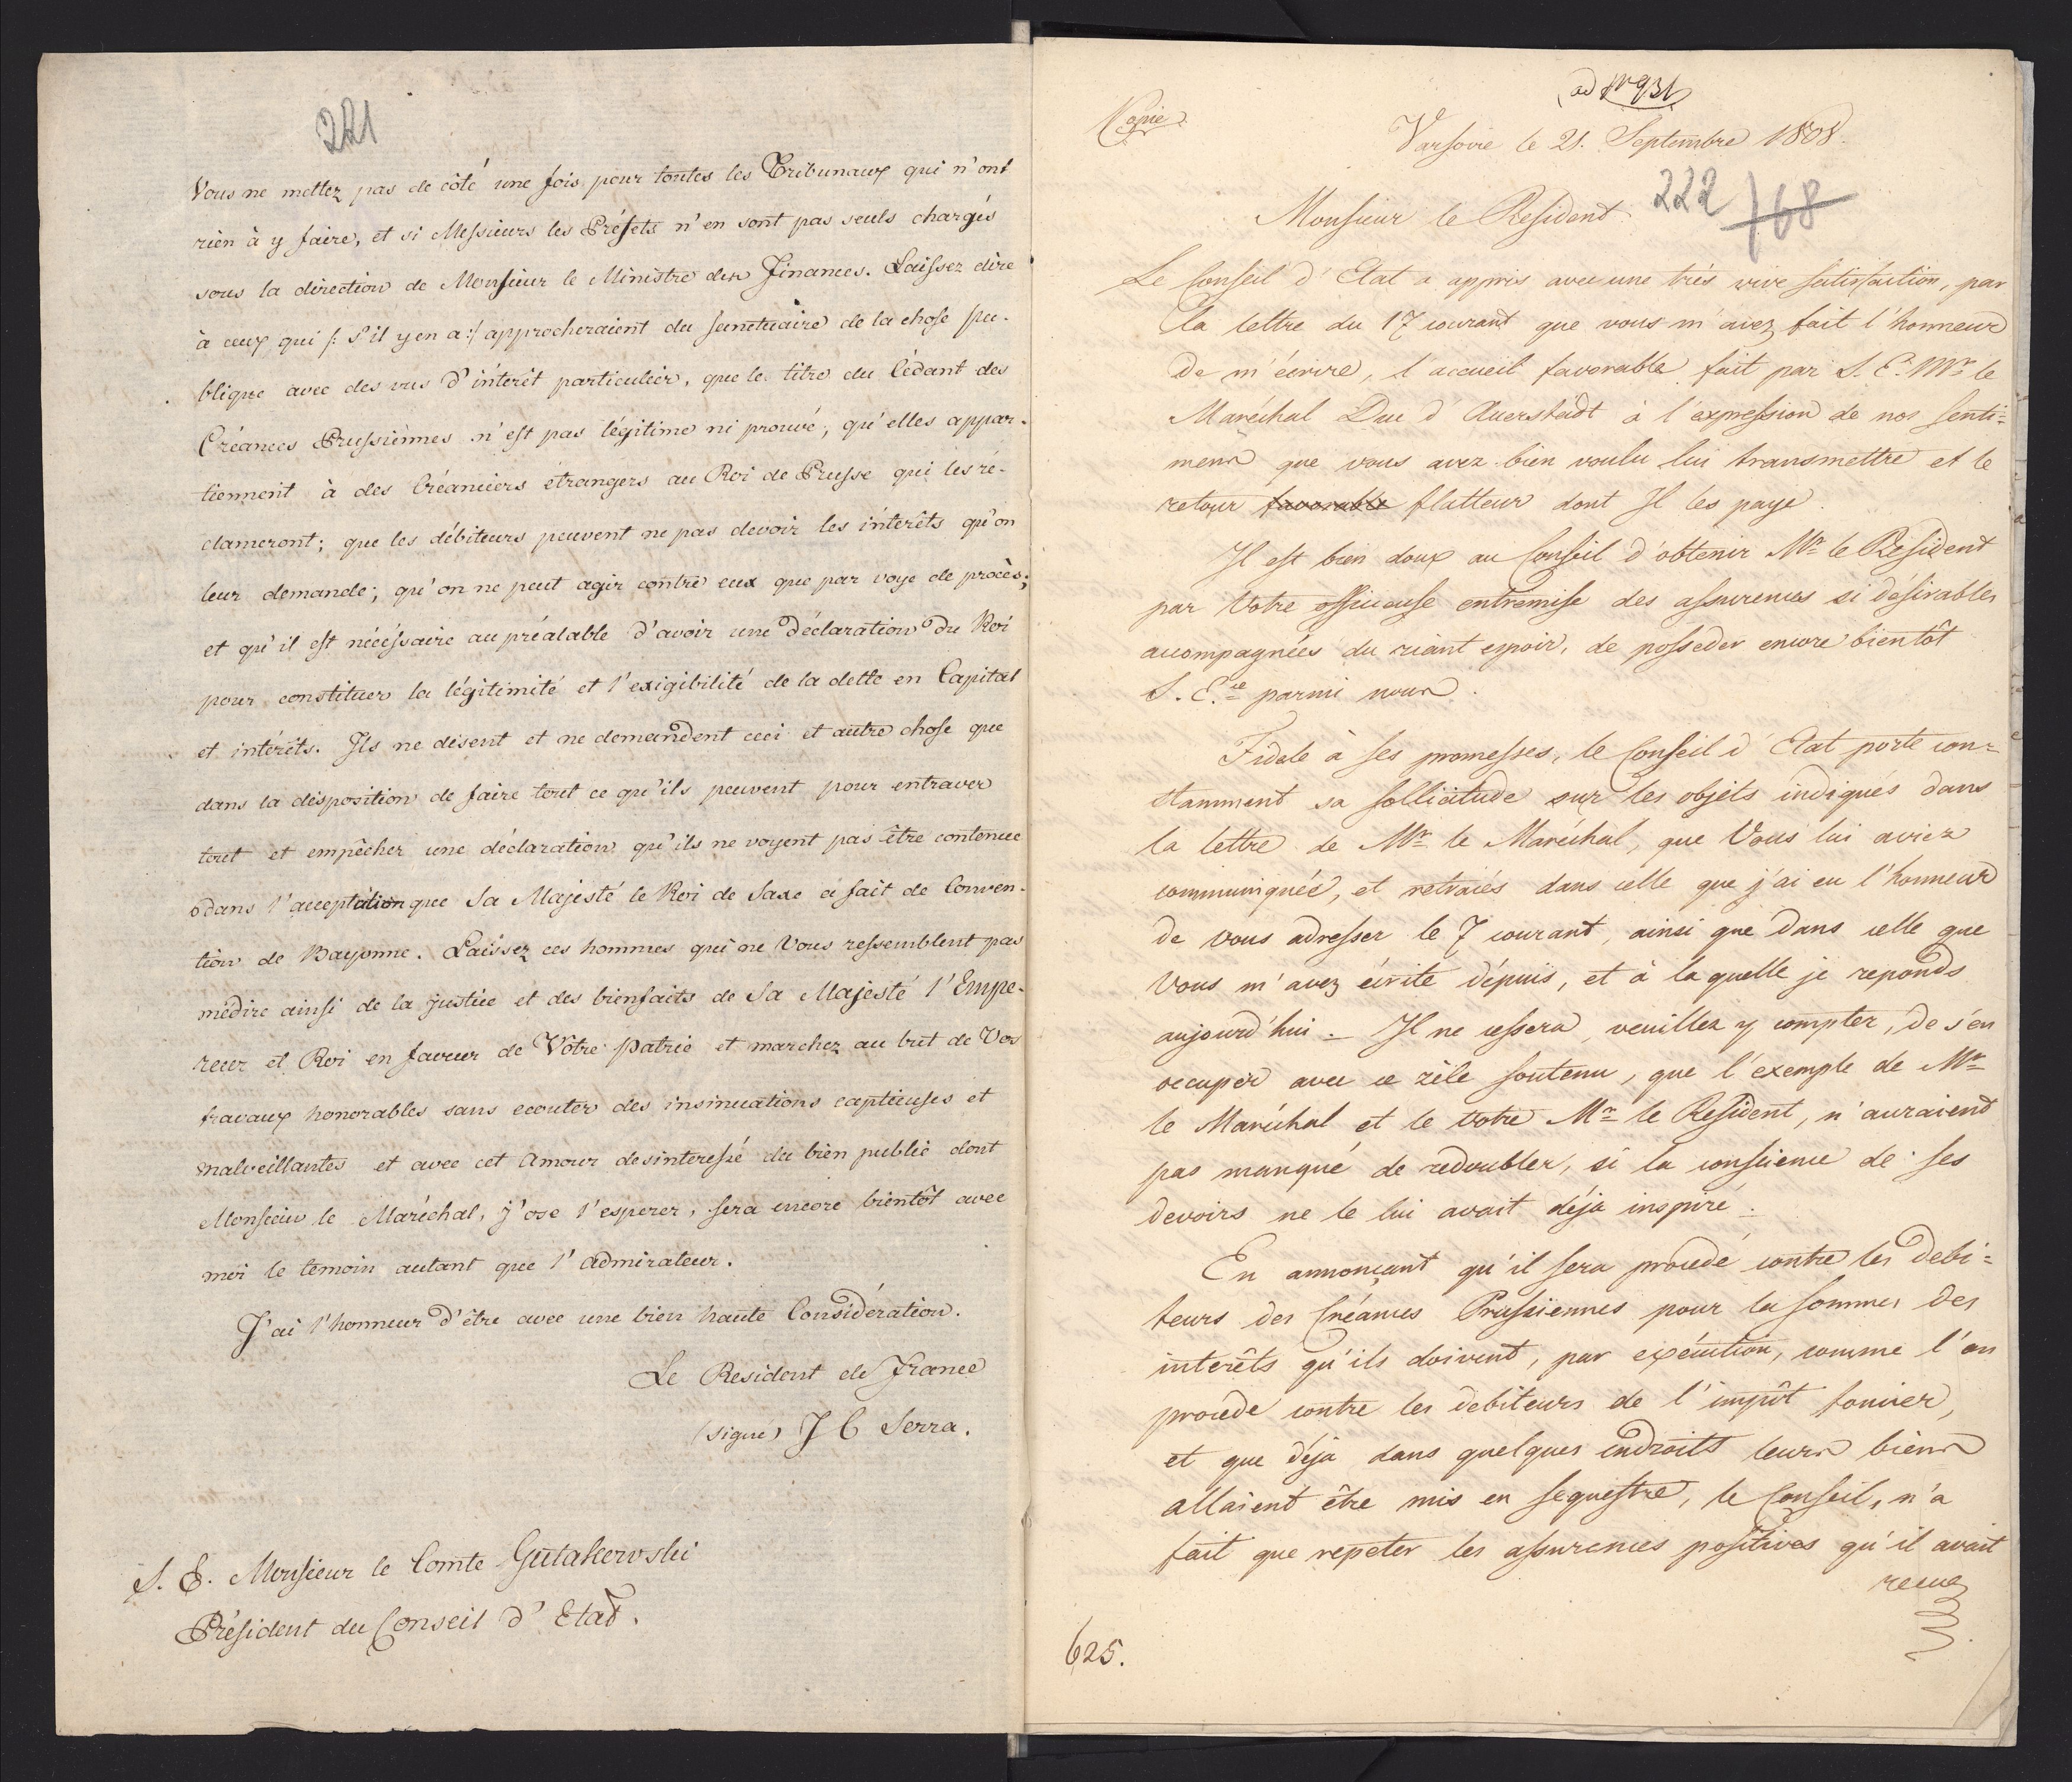 221
Vous ne mettez pas de côté une fois pour toutes les Tribunaux qui n'ont
rien à y faire, et si Messieurs les Préfets n'en sont pas seuls chargés
sous la direction de Monsieur le Ministre des Finances. Laissez dire
à ceux qui /: S'il y en a :/ approcheraient du sanctuaire de la chose pu-
blique avec des vus d'intérêt particulier, que le titre du Cédant des
Créances Prussiennes n'est pas légitime ni prouvé, qu'elles appar-
tiennent à des Créanciers étrangers au Roi de Prusse qui les ré-
clameront; que les débiteurs peuvent ne pas devoir les intérêts qu'on
leur demande; qu'on ne peut agir contre eux que par voye de procès;
et qu'il est nécéssaire au préalable d'avoir une déclaration du Roi
pour constituer la légitimité et l'exigibilité de la dette en Capital
et intérêts. Ils ne disent et ne demandent ceci et autre chose que
dans la disposition de faire tout ce qu'ils peuvent pour entraver
tout et empêcher une déclaration qu'ils ne voyent pas être contenue
dans l'acceptation que Sa Majesté le Roi de Saxe a fait de Conven-
tion de Bayonne. Laissez ces hommes qui ne Vous ressemblent pas
médire ainsi de la justice et des bienfaits de Sa Majesté l'Empe-
reur et Roi en faveur de Vôtre Patrie et marchez au but de Vos
travaux honorables sans ecouter des insinuations captieuses et
malveillantes et avec cet Amour desinteressé du bien public dont
Monsieur le Maréchal, j'ose l'esperer, sera encore bientôt avec
moi le temoin autant que l'admirateur.
J'ai l'honneur d'être avec une bien haute Considération.
Le Resident de France
(signé) J C Serra.
S. E. Monsieur le Comte Gutakowski
Président du Conseil d'Etat.
ad Nr 931
Copie
Varsovie le 21. Septembre 1808.
222 168
Monsieur le Resident
Le Conseil d'Etat a appris avec une très vive satisfaction, par
la lettre du 17 courant que vous m'avez fait l'honneur
de m'écrire, l'accueil favorable fait par S. E. Mr le
Maréchal Duc d'Auerstädt à l'expression de nos senti=
mens que vous avez bien voulu lui transmettre et le
retour favorable flatteur dont Il les paye.
Il est bien doux au Conseil d'obtenir Mr le Resident
par Votre officieuse entremise des assurences si désirables
accompagnées du riant espoir, de posseder encore bientôt
S. E.ce parmi nous.
Fidele à ses promesses, le Conseil d'Etat porte con=
stamment sa sollicitude sur les objets indiqués dans
la lettre de Mr le Maréchal, que Vous lui aviez
communiquée, et retraiés dans celle que j'ai eu l'honneur
de vous adresser le 7 courant, ainsi que dans celle que
Vous m'avez écrite dépuis, et à laquelle je reponds
aujourd'hui. Il ne cessera, veuillez y compter, de s'en
occuper avec ce zèle soutenu, que l'exemple de Mr
le Maréchal et le votre Mr le Resident, n'auraient
pas manqué de redoubler, si la conscience de ses
devoirs ne le lui avait déja inspiré.
En annonçant qu'il sera procedé contre les debi=
teurs des Créances Prussiennes pour la sommes des
interêts qu'ils doivent, par exécution, comme l'on
procede contre les debiteurs de l'impôt foncier,
et que déja dans quelques endroits leurs biens
allaient être mis en sequestre, le Conseil, n'a
fait que repeter les assurences positives qu'il avait
recues
625.